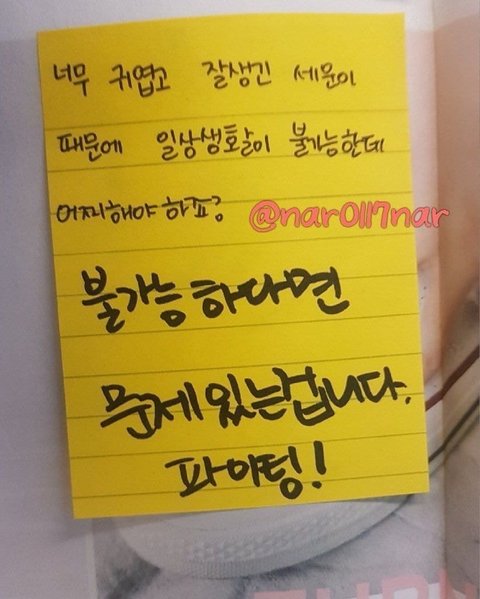 너무 귀엽고 잘생긴 세운이
때문에 일상생활이 불가능한데
어찌해야 하죠?
@nar0117nar
불가능하다면
문제있는겁니다.
파이팅!